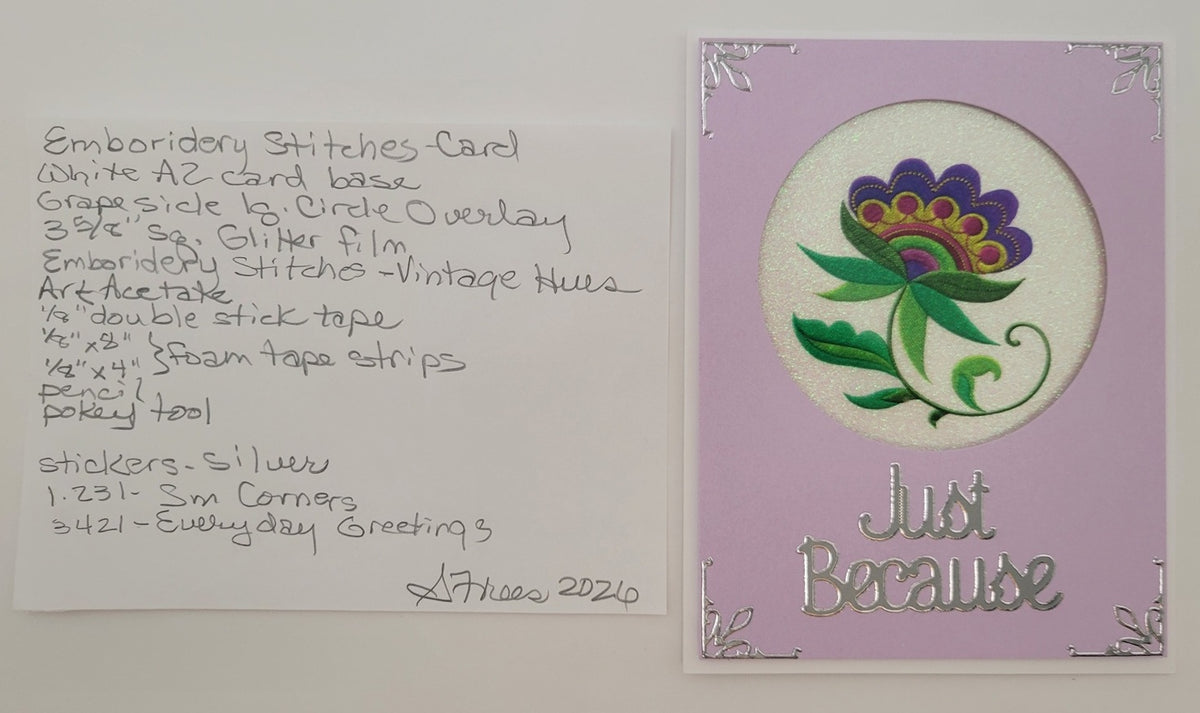 Emboridery Stitches-Card
White A2 card base
Grapesicle lg. Circle Overlay
3 5/8" sq. Glitter film
Emboridery Stitches-Vintage Hues
Art Acetate
1/8" double stick tape
1/8" x 8"
1/8" x 4" } foam tape strips
pencil
pokey tool
stickers-Silver
1.231- Sm Corners
3421-Everyday Greetings
SFrees 2026
Just
Because